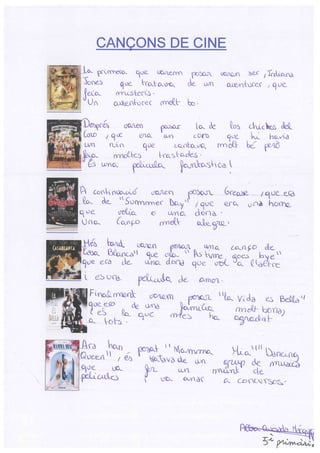 CANÇONS DE CINE
La primera que varem posar varen ser, Indiana
Jones que tratava de un aventurer, que
feia misteris.
Un aventurer molt bo.
Després varen posar la de los chicos del
Coro, que era un coro que hi havia
un nin que cantava molt bé però
feia moltes trastades.
És una pelicula fantastica!
A continuació varen posar Grease, que era
la de "Summmer Day", que era una home
que volia a una dona.
Una canço molt alegre.
Més tard varen posar una canço de
Casa Blanca" que era "As time goes bye"
que era de una dona que vol a l'actre
i es una pelicula de amor.
Finalment varem posar "la Vida es Bella"
que era de una familia molt bona,
i és la que més ha agradat
a tots.
Ara han posat "Mamma Mia" "Dancing
Queen", és tratava de un grup de musica
que va fer un munt de
pelicules i va anar a concursos.
5è primària